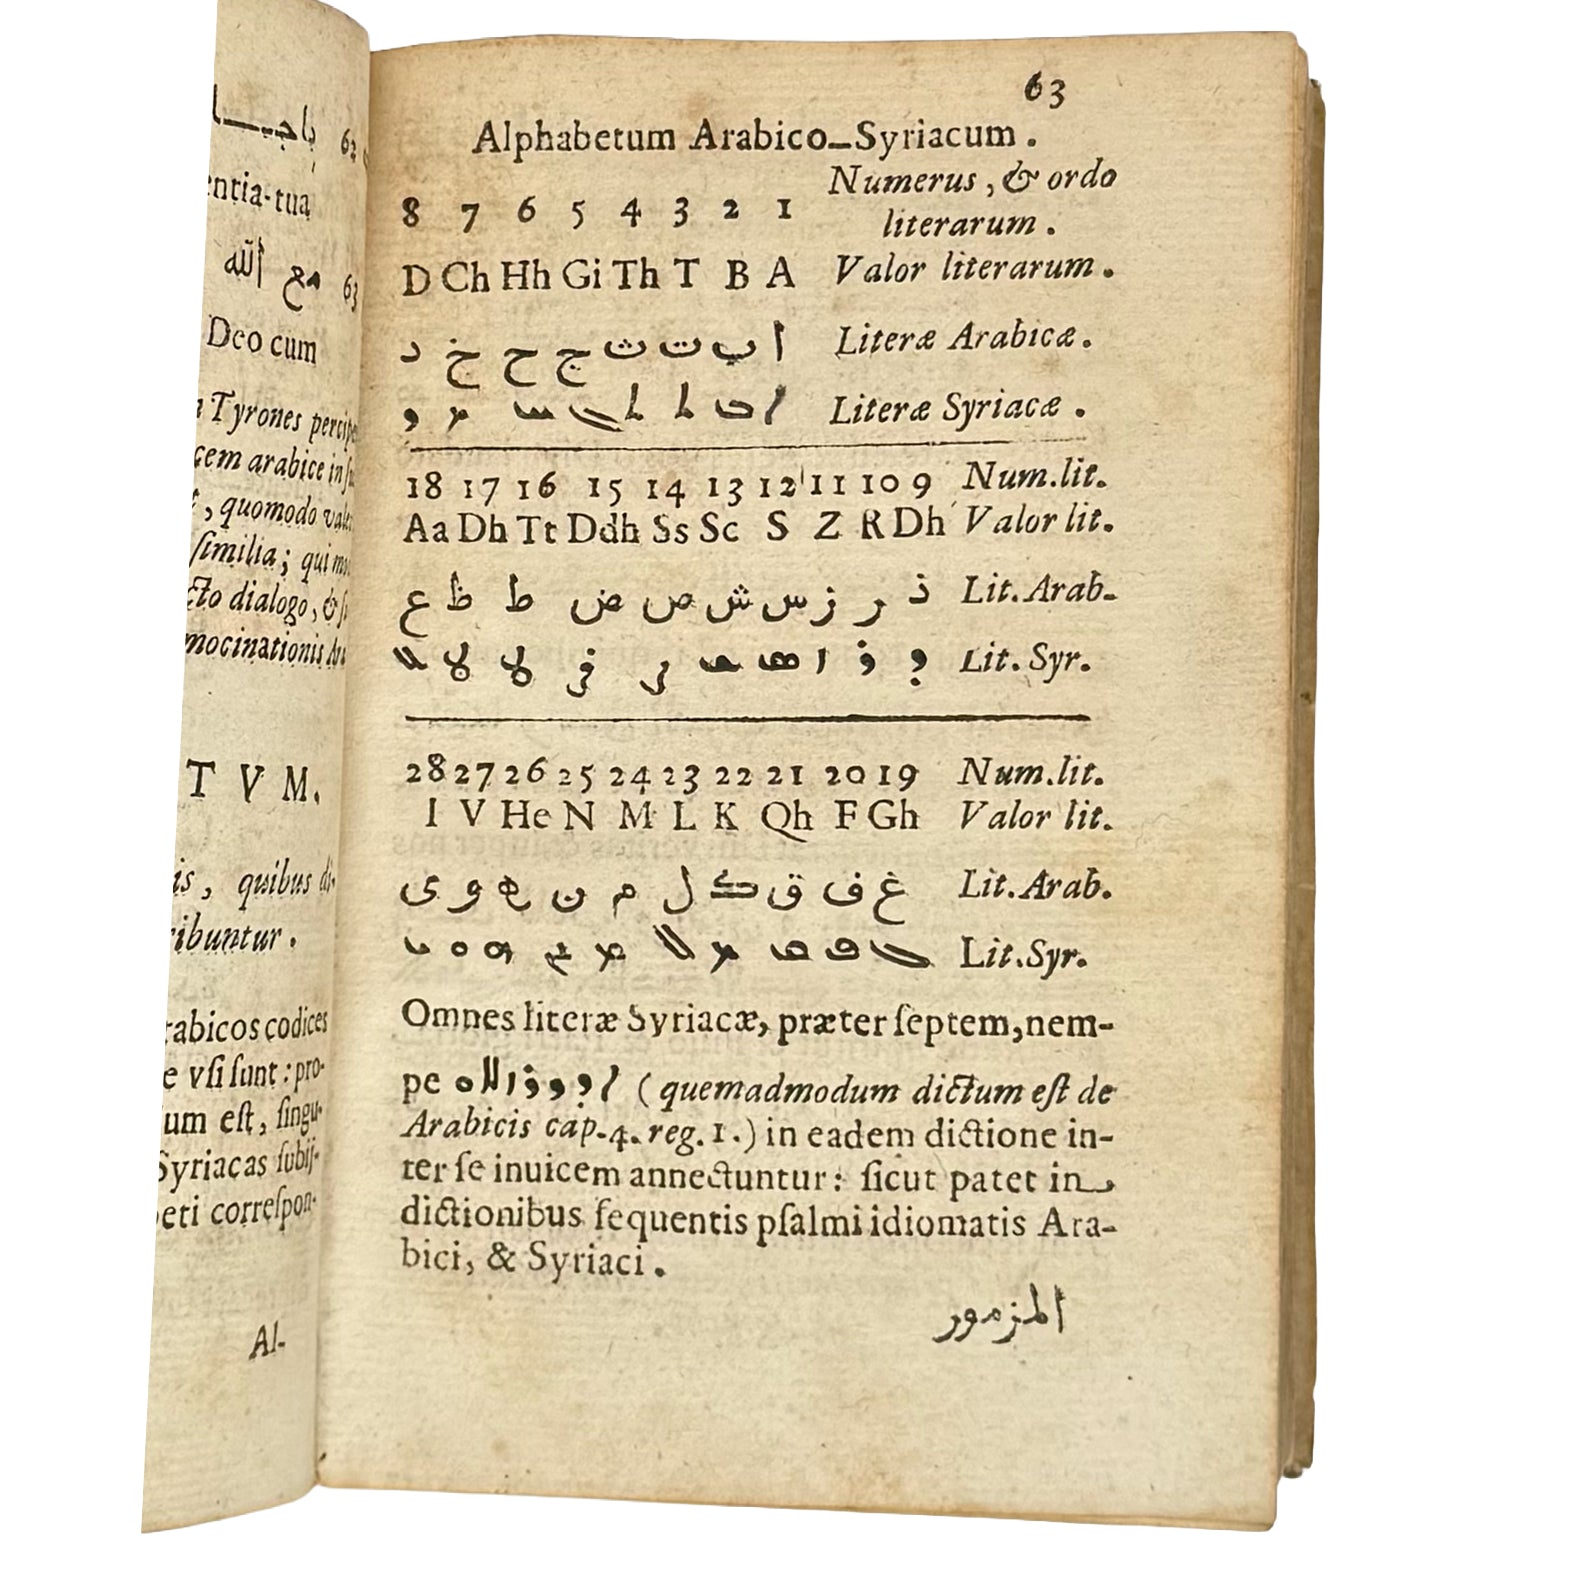 62
entia-tua
63 مع الله
Deo cum
Tyrones
cem arabice in
, quomodo
similia; qui
cto dialogo, &
mocinationis
T V M.
is, quibus di-
ribuntur.
rabicos codices
e vſi ſunt: pro-
um eſt, ſingu-
Syriacas ſubij-
peti correſpon-
Al-
63
Alphabetum Arabico-Syriacum.
8 7 6 5 4 3 2 1 Numerus, & ordo
literarum.
D Ch Hh Gi Th T B A Valor literarum.
ا ب ت ث ج ح خ د Literæ Arabicæ.
ܐ ܒ ܬ ܬ ܓ ܚ ܟ ܕ Literæ Syriacæ.
18 17 16 15 14 13 12 11 10 9 Num.lit.
Aa Dh Tt Ddh Ss Sc S Z R Dh Valor lit.
ذ ر ز س ش ص ض ط ظ ع Lit.Arab.
ܕ ܪ ܙ ܣ ܫ ܨ ܨ ܛ ܛ ܥ Lit.Syr.
28 27 26 25 24 23 22 21 20 19 Num.lit.
I V He N M L K Qh F Gh Valor lit.
غ ف ق ك ل م ن ه و ى Lit.Arab.
ܓ ܦ ܩ ܟ ܠ ܡ ܢ ܗ ܘ ܝ Lit.Syr.
Omnes literæ Syriacæ, præter ſeptem, nem-
pe ܐ ܕ ܕ ܪ ܙ ܠܐ ܘ (quemadmodum dictum eſt de
Arabicis cap.4.reg.1.) in eadem dictione in-
ter ſe inuicem annectuntur: ſicut patet in
dictionibus ſequentis pſalmi idiomatis Ara-
bici, & Syriaci.
المزمور